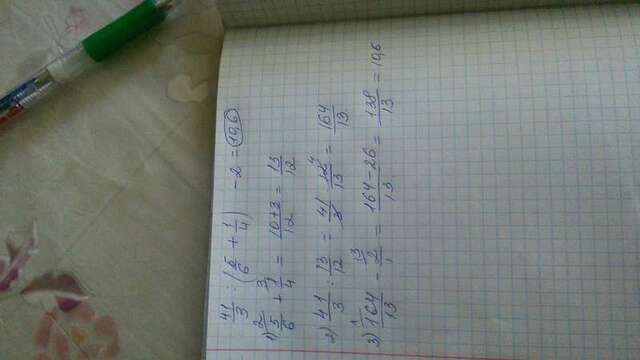 41/3 : (5/6 + 1/4) - 2 = 10,6
1) 5/6 + 1/4 = 10+3/12 = 13/12
2) 41/3 : 13/12 = 41/3 · 12/13 = 164/13
3) 164/13 - 2/1 = 164-26/13 = 138/13 = 10,6